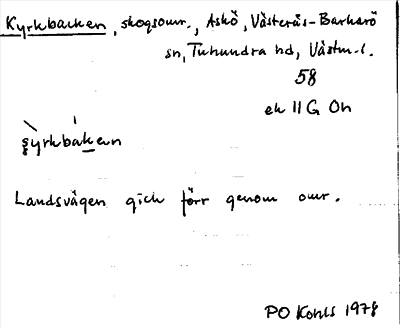 Kyrkbacken, skogsomr., Askö, Västerås-Barkarö
sn, Tuhundra hd, Västm. l.
58
ek 11 G Oh
şỳrkbaken
Landsvägen gick förr genom omr.
PO Kohls 1978